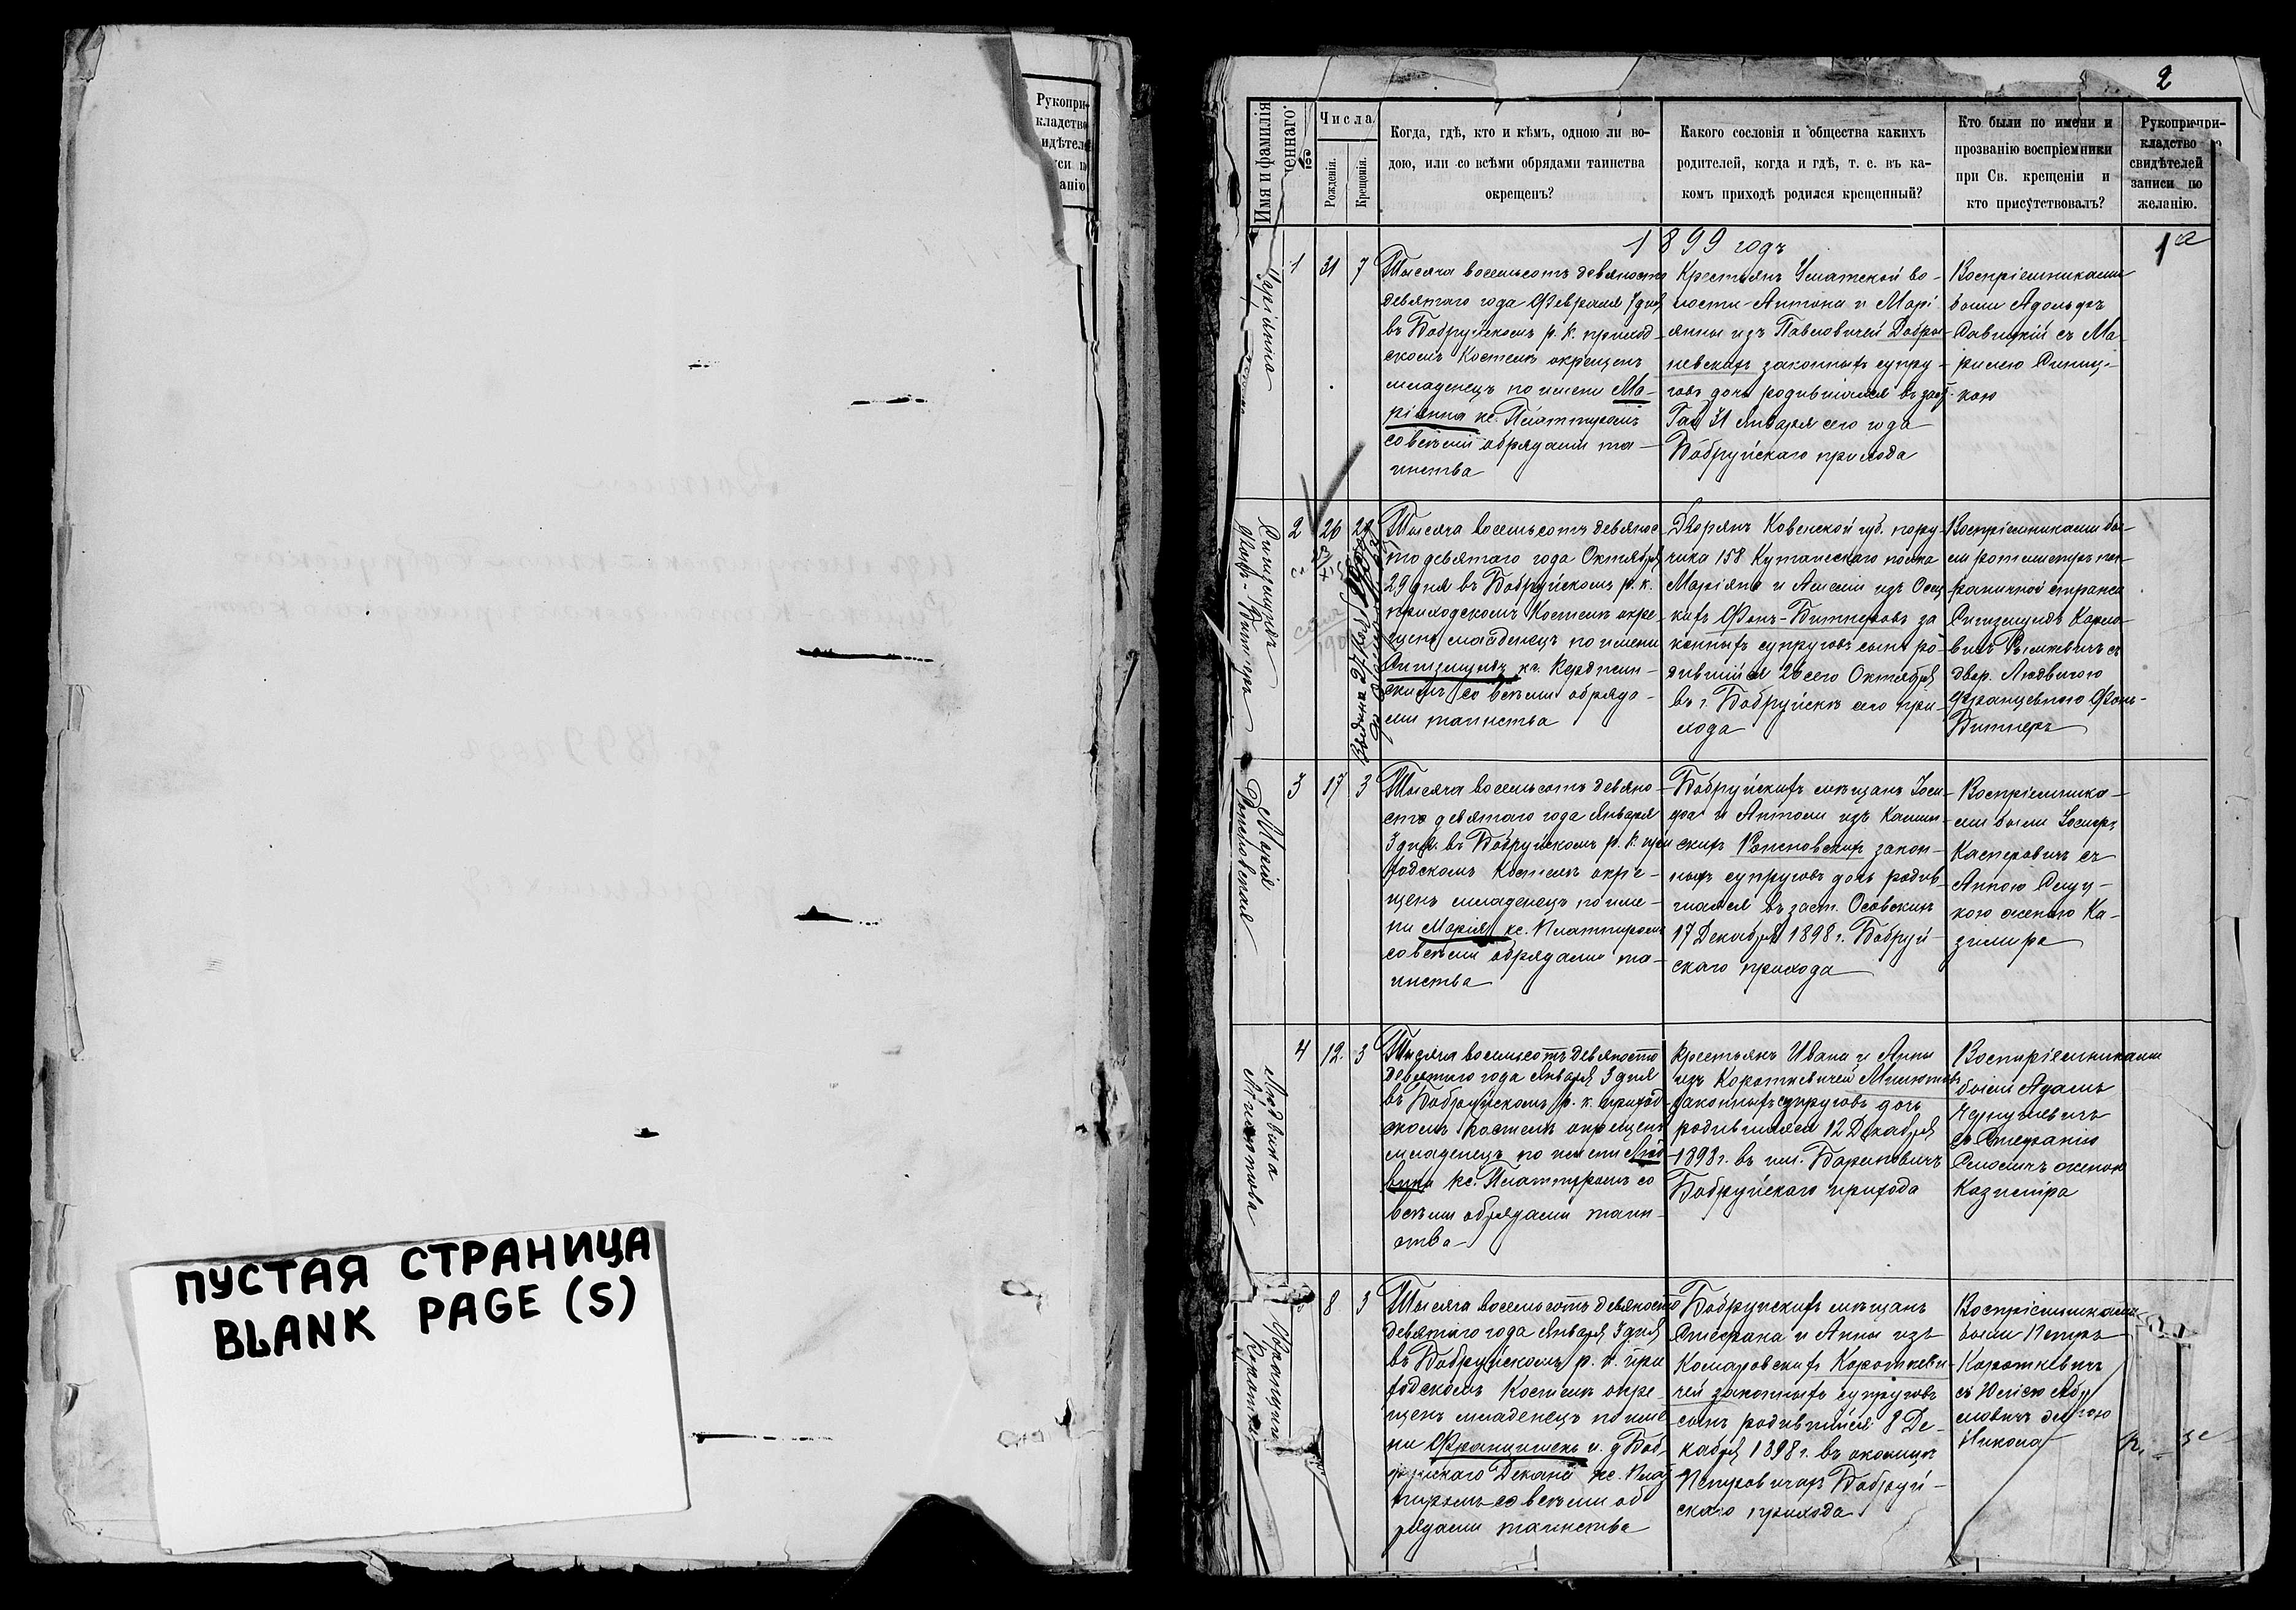 Рукопри-
кладство
ПУСТАЯ СТРАНИЦА
BLANK PAGE (S)
2
Имя и фамилія
Числа
Рожденія.
Крещенія.
Когда, гдѣ, кто и кѣмъ, одною ли во-
дою, или со всѣми обрядами таинства
окрещенъ?
Какого сословія и общества какихъ
родителей, когда и гдѣ, т. е. въ ка-
комъ приходѣ родился крещенный?
Кто были по имени и
прозванію воспріемники
при Св. крещеніи и
кто присутствовалъ?
Рукопри-
кладство
свидѣтелей
записи по
желанію.
1899 годъ
1а
Маріянна
1
31
7
Тысяча восемьсотъ девяносто
девятаго года Февраля 7 дня
въ Бобруйскомъ р. к. приход-
скомъ Костелѣ окрещенъ
младенецъ по имени Ма-
ріянна кс. Платпиромъ
со всѣми обрядами та-
инства
Крестьянъ во-
лости Антона и Марі-
янны изъ Павловичей Добры-
невскихъ законныхъ супру-
говъ дочь родившаяся въ
31 Января сего года
Бобруйскаго прихода
Воспріемниками
были Адольфъ
Савицкій съ Ма-
ріею
кою
Сигизмундъ
Фонъ-Битнеръ
2
26
29
Тысяча восемьсотъ девянос-
то девятаго года Октября
29 дня въ Бобруйскомъ р. к.
приходскомъ Костелѣ окре-
щенъ младенецъ по имени
Сигизмундъ кс.
скимъ со всѣми обряда-
ми таинства
Дворянъ Ковенской губ. пору-
чика 158 Кутаисскаго полка
Маріяна и Амеліи изъ
кихъ Фонъ-Битнеровъ за-
конныхъ супруговъ сынъ ро-
дившійся 26 сего Октября
въ г. Бобруйскѣ сего при-
хода
Воспріемниками бы-
ли ротмистръ пог-
раничной стражи
Сигизмундъ Карло-
вичъ съ
двор. Людвигою
Францевною Фонъ-
Битнеръ
Марія
Рапсновская
3
17
3
Тысяча восемьсотъ девяно-
сто девятаго года Января
3 дня въ Бобруйскомъ р. к. при-
ходскомъ Костелѣ окре-
щенъ младенецъ по име-
ни Марія кс. Платпиромъ
со всѣми обрядами та-
инства
Бобруйскихъ мѣщанъ Іоси-
фа и Антоли изъ Камин-
скихъ Рапсновскихъ закон-
ныхъ супруговъ дочь родив-
шаяся въ заст. Осовскихъ
17 Декабря 1898 г. Бобруй-
скаго прихода
Воспріемника-
ми были Іосифъ
Касперовичъ съ
Анною Слуц-
кою женою Ка-
зимира
Людвина
4
12.
3
Тысяча восемьсотъ девяносто
девятаго года Января 3 дня
въ Бобруйскомъ р. к. приход-
скомъ костелѣ окрещенъ
младенецъ по имени Люд-
вина кс. Платпиромъ со
всѣми обрядами таин-
ства
Крестьянъ Ивана и Анны
изъ Короткевичей
законныхъ супруговъ дочь
родившаяся 12 Декабря
1898 г. въ им. Бариновичъ
Бобруйскаго прихода
Воспріемниками
были Адамъ
съ Стефанію
Смоличъ женою
Казиміра
Францишекъ
8
3
Тысяча восемьсотъ девяносто
девятаго года Января 3 дня
въ Бобруйскомъ р. к. при-
ходскомъ Костелѣ окре-
щенъ младенецъ по име-
ни Францишекъ и. д. Боб-
руйскаго Декана кс. Плат-
пиромъ со всѣми об-
рядами таинства
Бобруйскихъ мѣщанъ
Стефана и Анны изъ
Комаровскихъ Короткеви-
чей законныхъ супруговъ
сынъ родившійся 8 Де-
кабря 1898 г. въ околицѣ
Петровичахъ Бобруй-
скаго прихода
Воспріемниками
были Петръ
Короткевичъ
съ Юліею
Никола